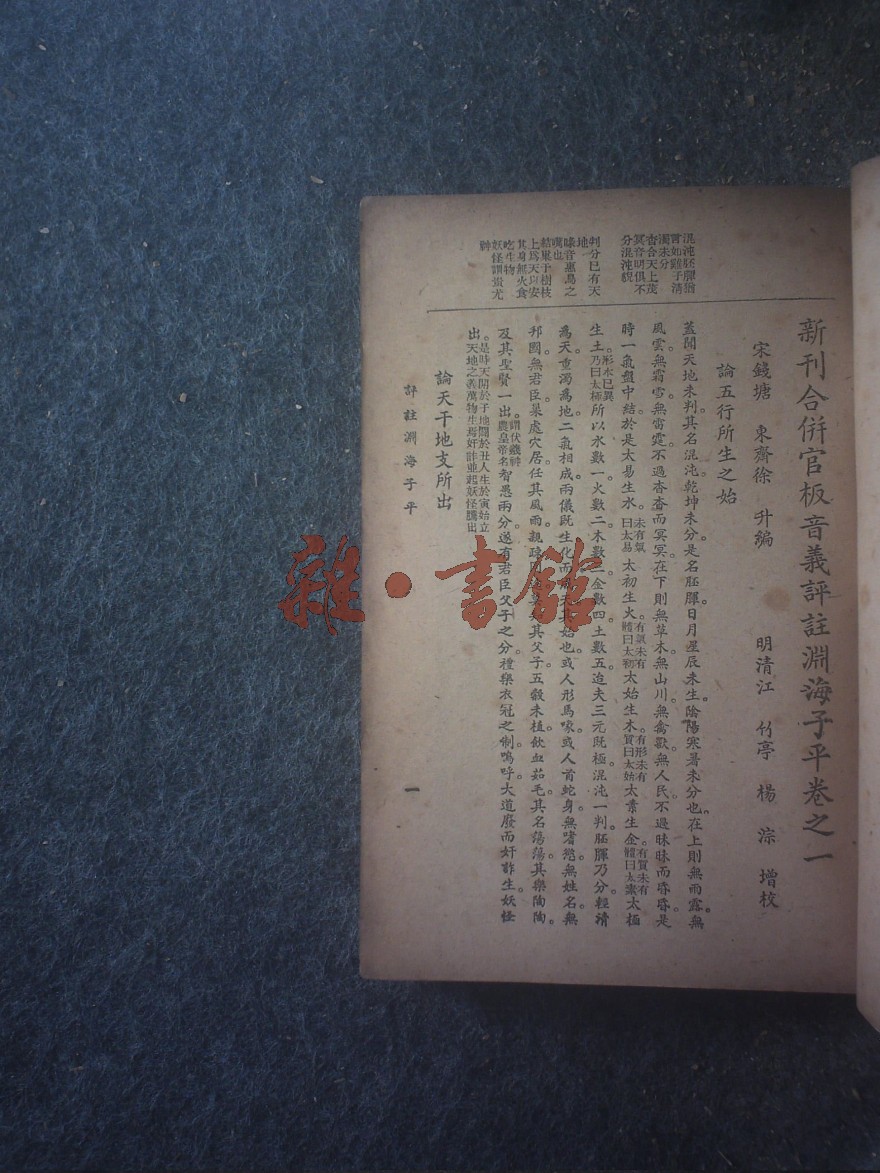 新刊合併官板音義評註淵海子平卷之一
宋錢塘 東齋徐 升編 明清江 竹亭 楊 淙 增校
論五行所生之始
蓋聞天地未判其名混沌乾坤未分是名胚腪日月星辰未生陰陽寒暑未分也。在上則無雨露。無
風雲。無霜雪。無雷霆。不過杳杳而冥冥。在下則無草木。無山川。無禽獸。無人民。不過昧昧而昏昏。是
時一氣盤中結。於是太易生水。未有氣曰太易太初生火。有氣未有體曰太初太始生木。有形未有質曰太始太素生金。有質未有體曰太素太極
生土。形水已異乃曰太極所以水數一火數二木數三金數四土數五迨夫三元既極混沌一判。胚腪乃分輕清
為天重濁為地二氣相成兩儀既生化而成天其始也或人形馬喙。或人首蛇身無嗜慾。無姓名。無
邦國。無君臣巢處穴居任其風雨親疎同途其父子五穀未植飲血茹毛其名蕩蕩。其樂陶陶。
及其聖賢一出。謂伏羲神農皇帝名智愚兩分遂有君臣父子之分禮樂衣冠之制嗚呼大道廢而奸詐生妖怪
出。是時天開於子地闢於丑人生於寅始立天地之義萬物生焉奸詐並起妖怪騰出
論天干地支所出
評註淵海子平
一
混沌胚腪猶
言如雞子清
濁未分
杳合天上茂
冥音明俱不
分混沌貌
判分已有天
地
喙音惠鳥之
嘴也
結巢于樹枝
上為天以安
其身無火食
吃生物
妖怪謂蚩尤
神
雜·書館